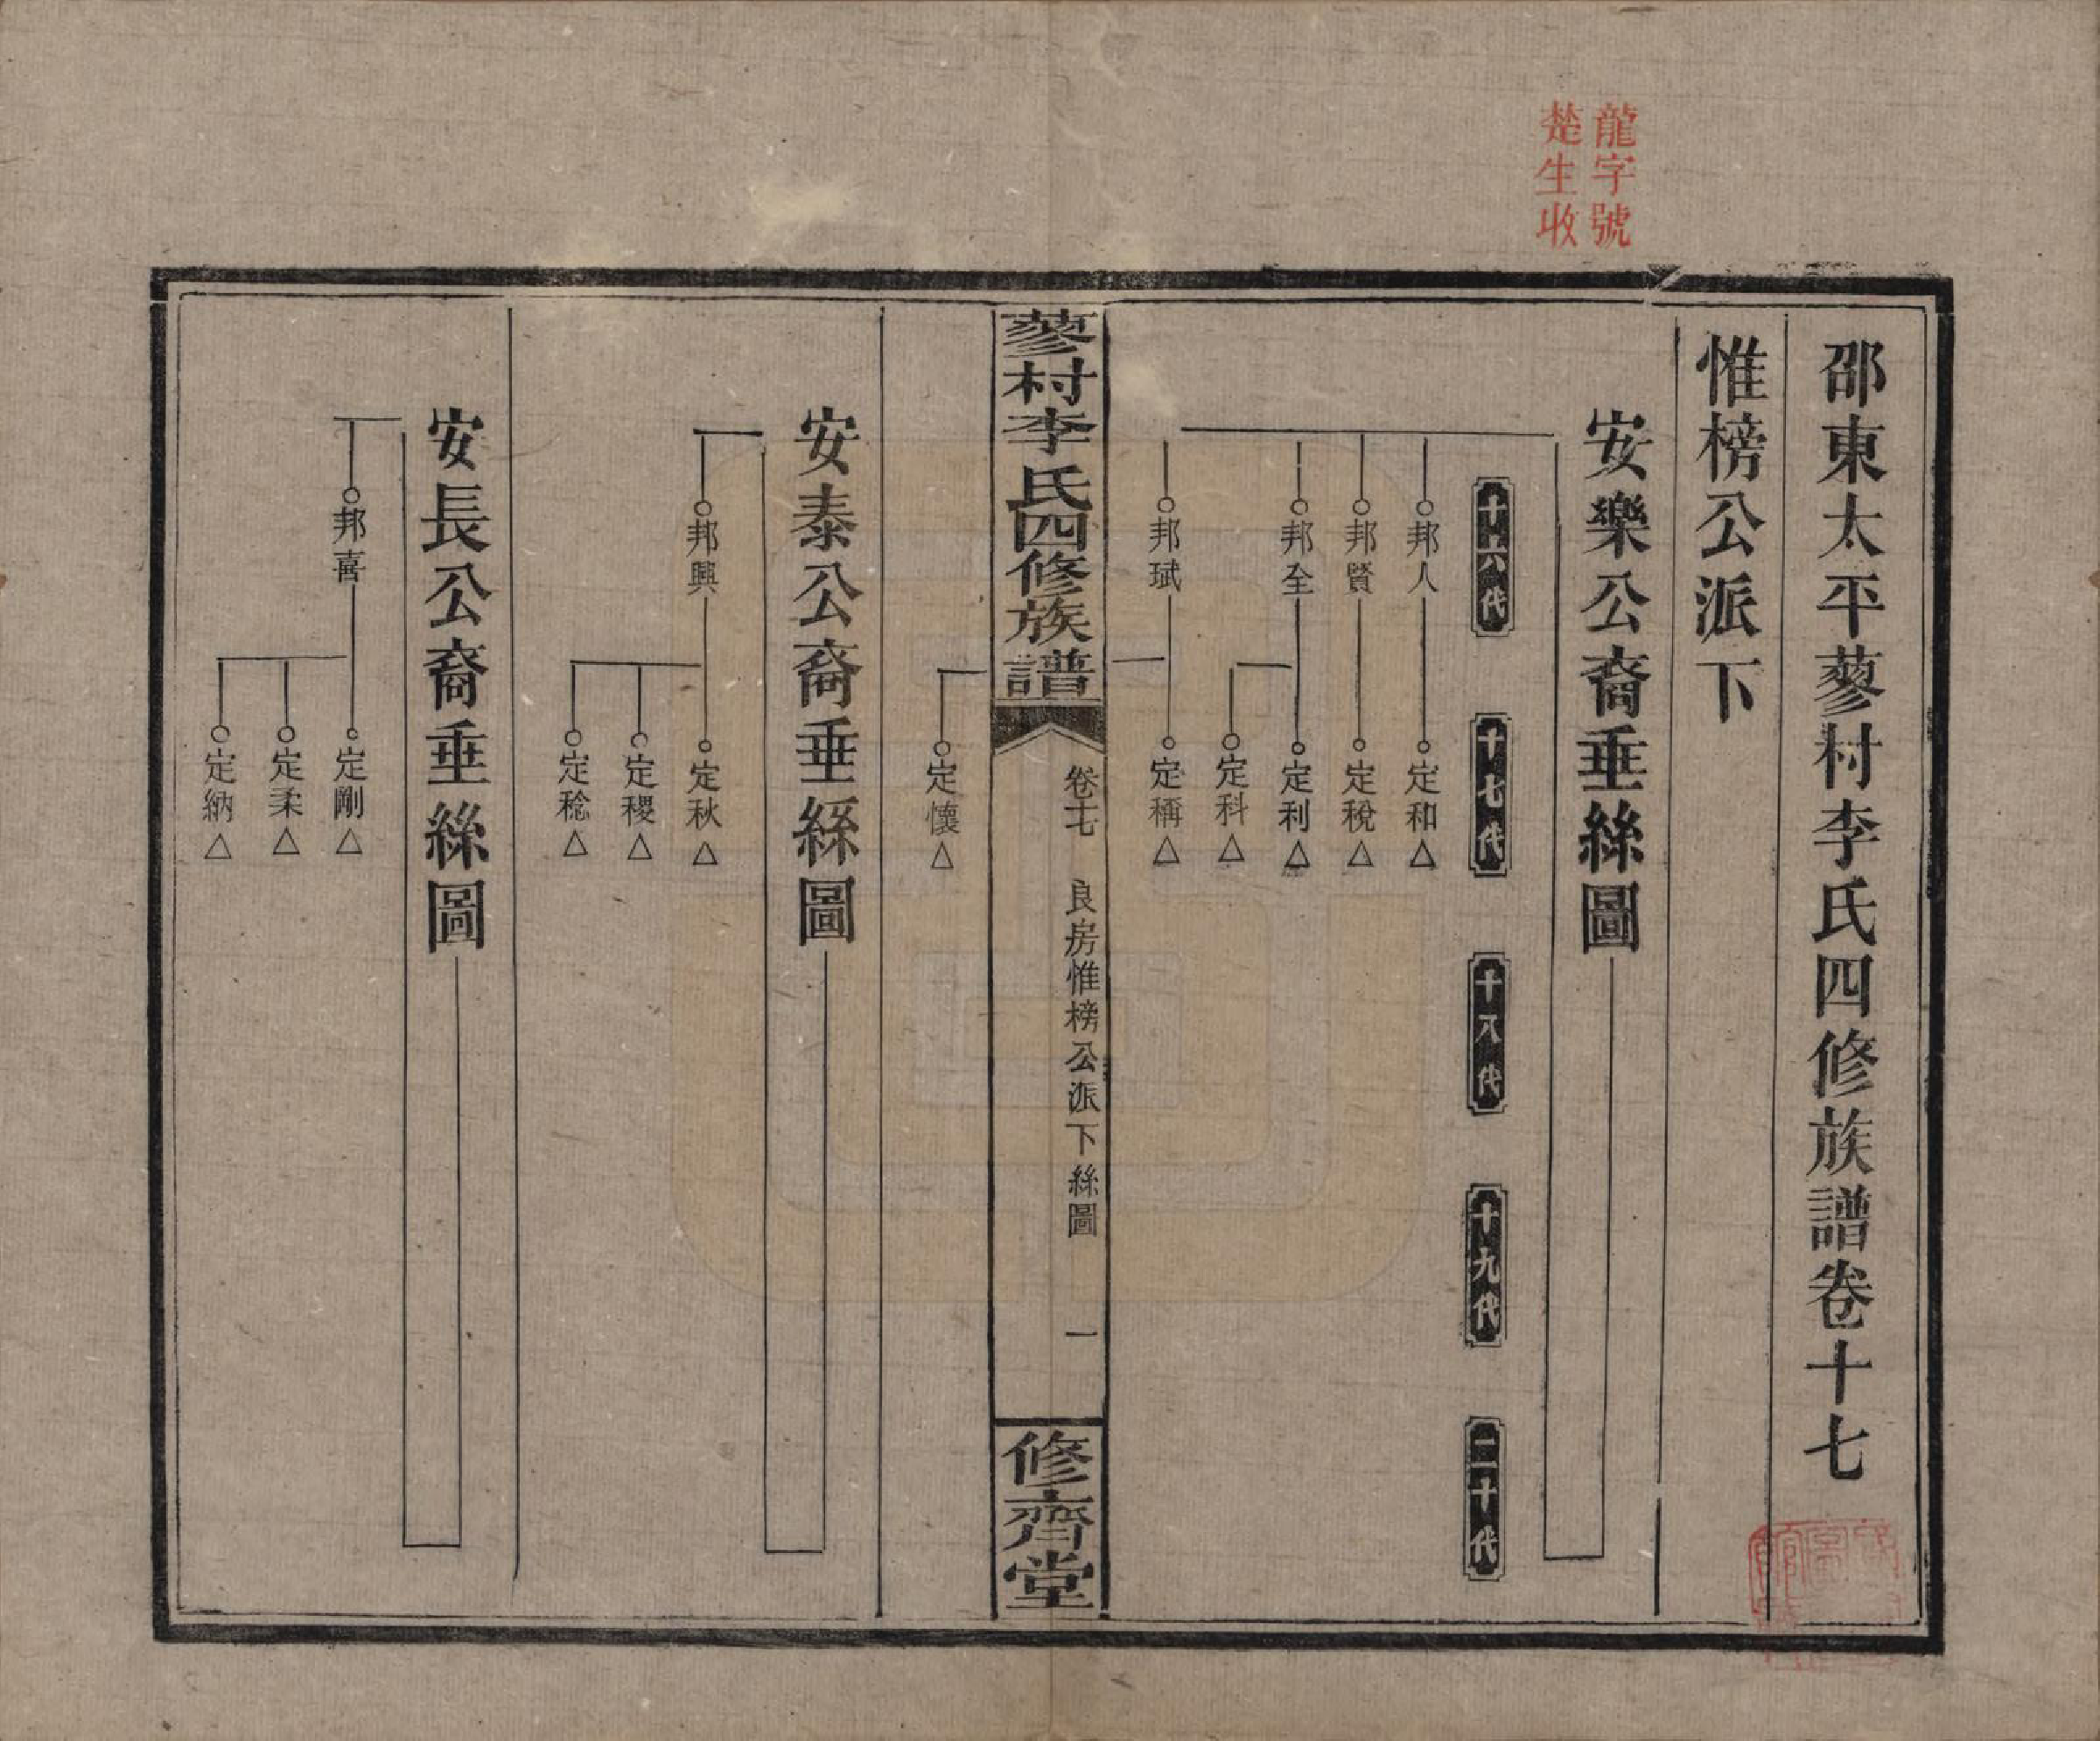 龍字號
楚生收
邵東太平蓼村李氏四修族譜卷十七
惟榜公派下
安樂公裔垂絲圖
十六代
十七代
十八代
十九代
二十代
邦人
定和△
邦賢
定稅△
邦全
定利△
定科△
邦珷
定稱△
蓼村李氏四修族譜
卷十七
良房惟榜公派下絲圖
一
修齊堂
定懷△
安泰公裔垂絲圖
邦興
定秋△
定稷△
定稔△
安長公裔垂絲圖
邦喜
定剛△
定柔△
定納△